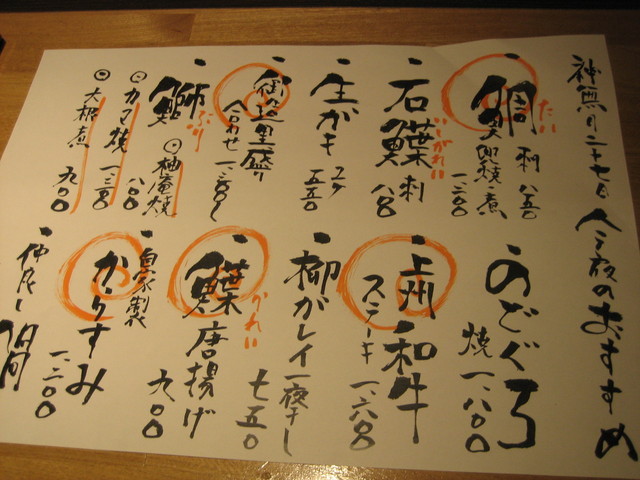 神無月二十七日 今夜のおすすめ
鯛 たい
刺 八五〇
兜焼・煮 一、二〇〇
石鰈 いしがれい
刺 八〇〇
生ガキ
五五〇
盛り
合わせ 一、二〇〇〜
鰤 ぶり
柚庵焼
カマ焼 八〇〇
大根煮 九〇〇
のどぐろ
焼 一、八〇〇
上州和牛
ステーキ 一、六〇〇
柳がレイ一夜干し
七五〇
鰈唐揚げ かれい
九〇〇
自家製
からすみ
一、二〇〇